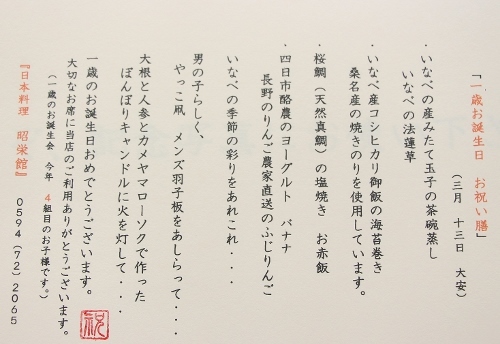 「一歳お誕生日　お祝い膳」
（三月　十三日　大安）
・いなべの産みたて玉子の茶碗蒸し
いなべの法蓮草
・いなべ産コシヒカリ御飯の海苔巻き
桑名産の焼きのりを使用しています。
・桜鯛（天然真鯛）の塩焼き　お赤飯
・四日市酪農のヨーグルト　バナナ
長野のりんご農家直送のふじりんご
いなべの季節の彩りをあれこれ・・・
男の子らしく、
やっこ凧　メンズ羽子板をあしらって・・・・
大根と人参とカメヤマローソクで作った
ぼんぼりキャンドルに火を灯して・・・・
一歳のお誕生日おめでとうございます。
大切なお席に当店のご利用ありがとうございます。
（一歳のお誕生会　今年　４組目のお子様です。）
『日本料理　昭栄館』　０５９４（７２）２０６５
祝